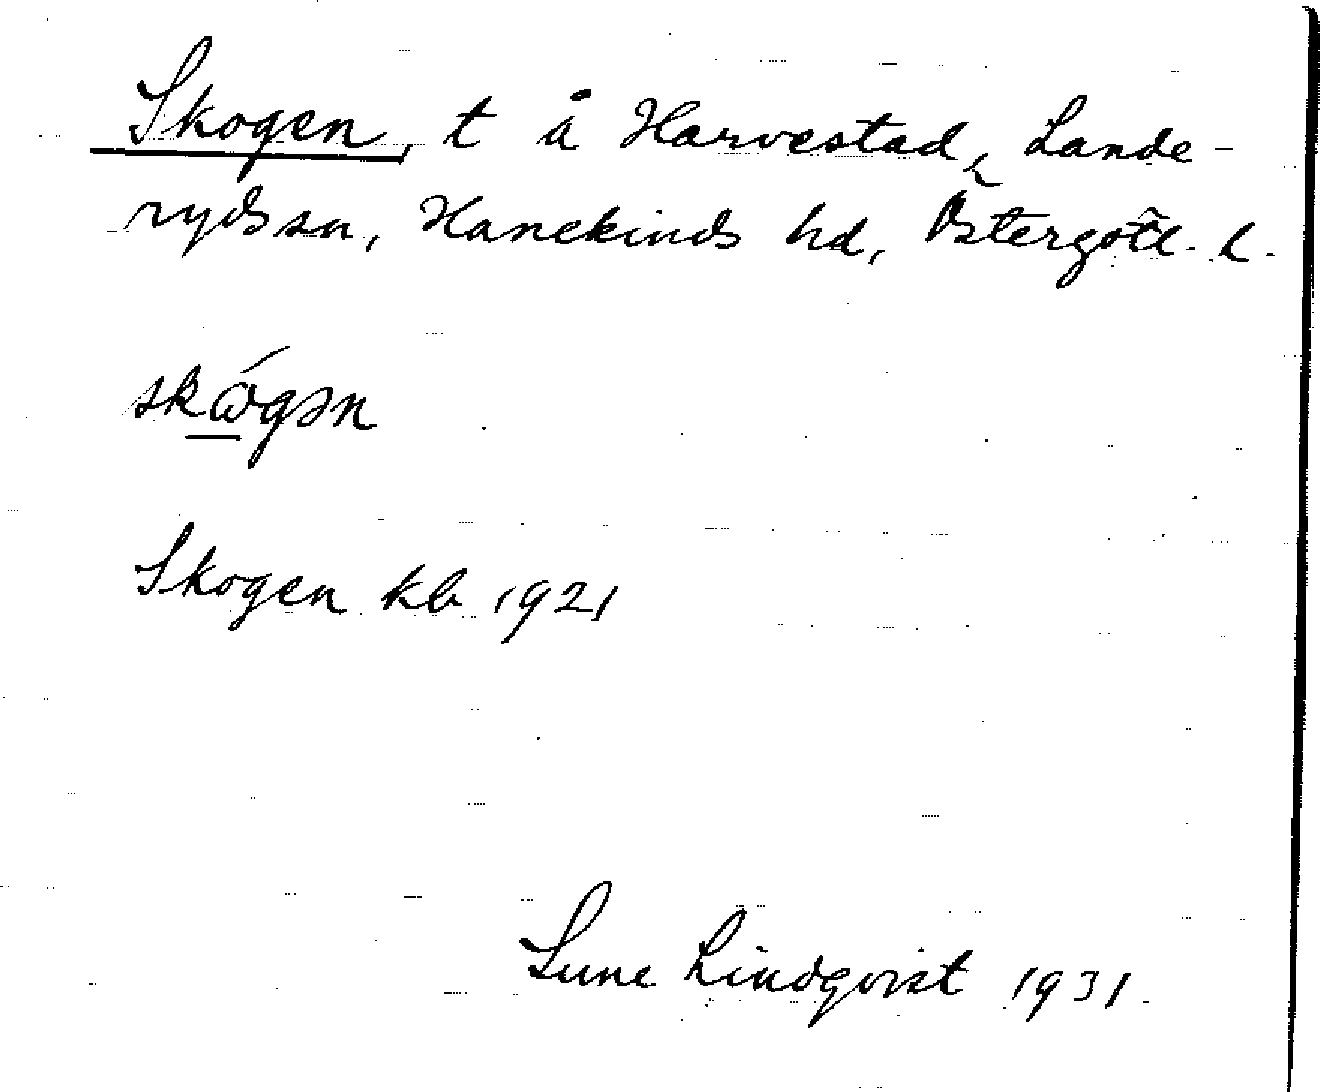 Skogen, t å Harvestad, Lande-
rydssn, Hanekinds hd, Östergötl. l.
skǿgən
Skogen kb 1921
Sune Lindqvist 1931.